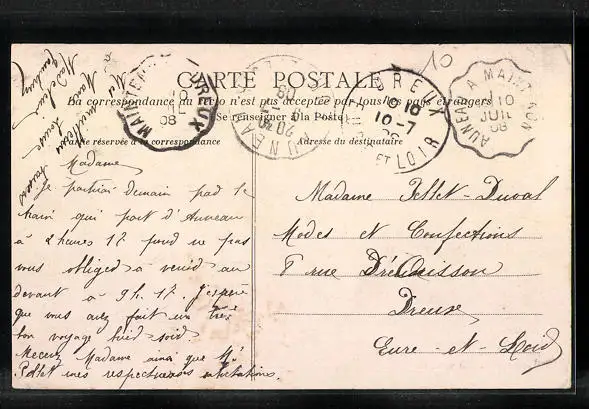 CARTE POSTALE
La correspondance au recto n'est pas acceptée par tous les pays étrangers
Se renseigner à la Poste
Partie réservée à la correspondance
Adresse du destinataire
MAINTENON DREUX
08
DREUX
10 10
10-7
ET LOIR
AUNEAU A MAINTENON
10
JUIL
08
10
Madame
Je partirai demain pad le
train qui part d'Auneau
à 2 heures 17 poud ne pas
vous obliged à venid au
devant à 9h.17. J'espère
que vous avez fait un très
bon voyage hied soid.
Recevez Madame ainsi que Mr
Pellet mes respectueuses salutations.
Madame Pellet-Duval
Modes et Confections
8 rue
Dreux
Eure-et-Loid